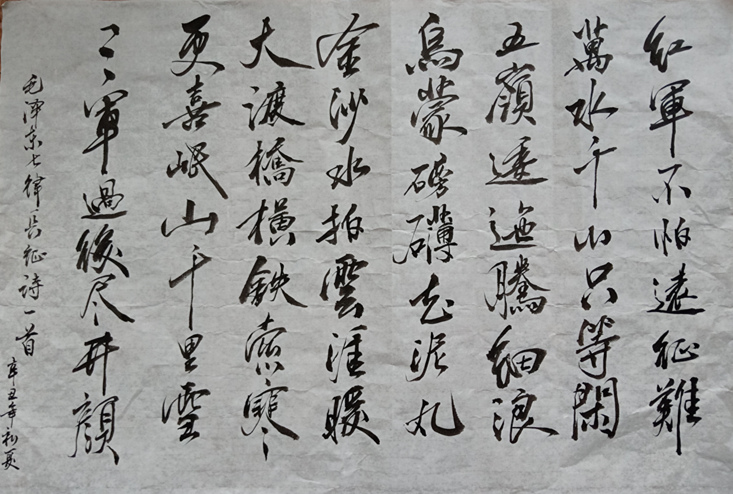 紅軍不怕遠征難
萬水千山只等閑
五嶺逶迤騰細浪
烏蒙磅礴走泥丸
金沙水拍雲涯暖
大渡橋橫鐵索寒
更喜岷山千里雪
三軍過後尽開顏
毛澤東七律長征詩一首
辛丑年初夏